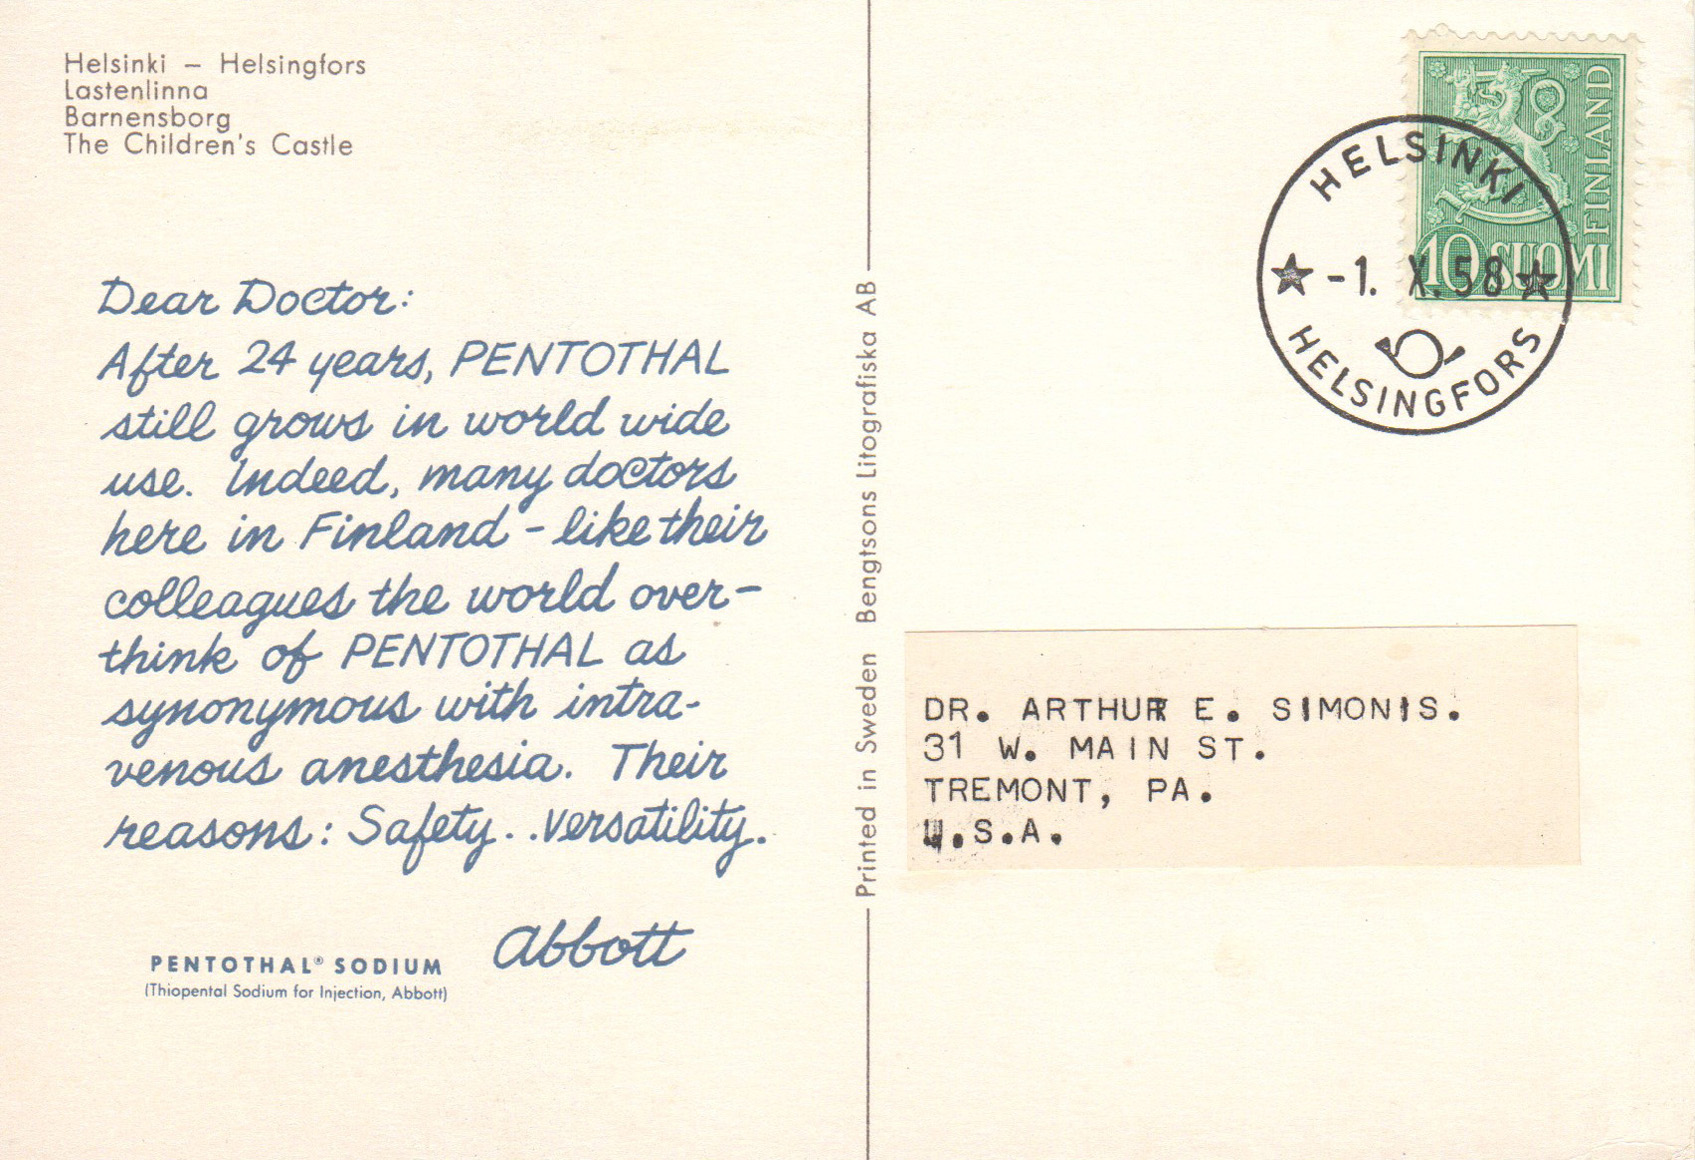 Helsinki – Helsingfors
Lastenlinna
Barnensborg
The Children's Castle
Dear Doctor:
After 24 years, PENTOTHAL
still grows in world wide
use. Indeed, many doctors
here in Finland - like their
colleagues the world over -
think of PENTOTHAL as
synonymous with intra-
venous anesthesia. Their
reasons: Safety. . .versatility.
Abbott
PENTOTHAL® SODIUM
(Thiopental Sodium for Injection, Abbott)
Printed in Sweden Bengtsons Litografiska AB
FINLAND
10 SUOMI
HELSINKI
-1. X.58
HELSINGFORS
DR. ARTHUR E. SIMONIS.
31 W. MAIN ST.
TREMONT, PA.
U.S.A.